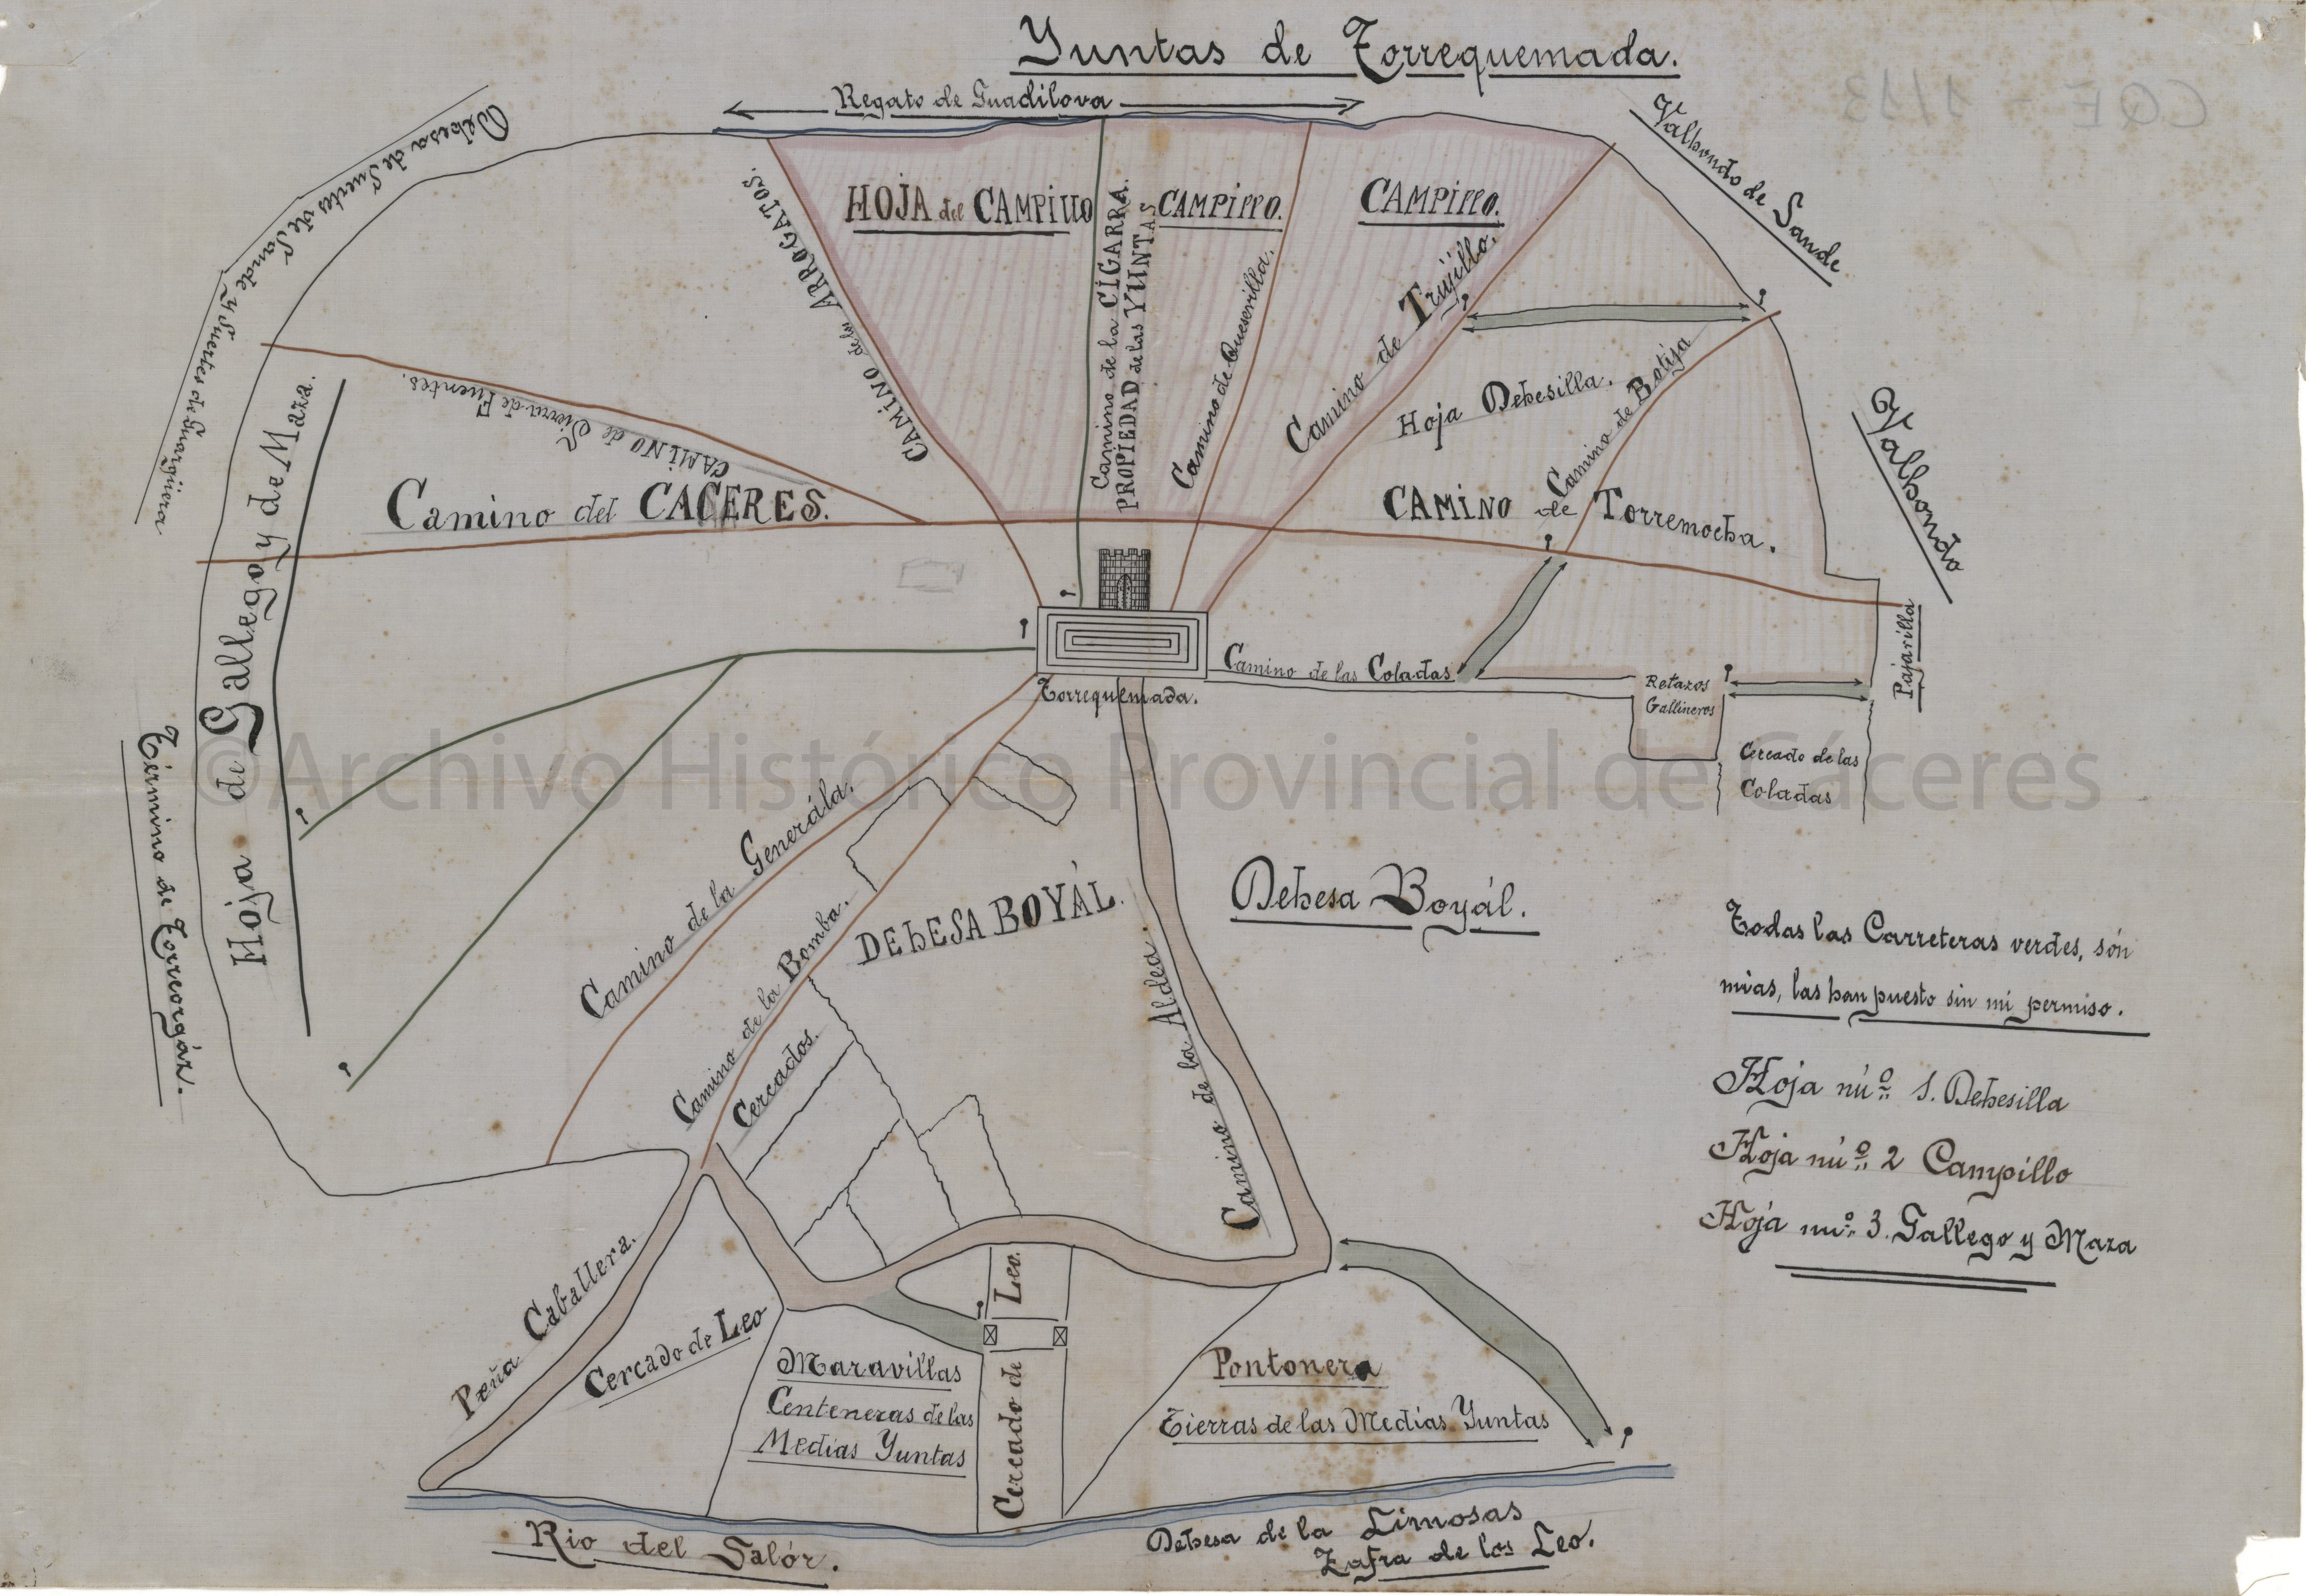 Yuntas de Torrequemada.
Regato de Guadilova
Dehesa de Suertes de Sande y Suertes de Guargüera
Valhondo de Sande
HOJA del CAMPILLO
CAMPILLO.
CAMPILLO.
CAMINO de los ARROGATOS.
Camino de la CIGARRA.
PROPIEDAD de las YUNTAS
Camino de Quesevilla.
Camino de Trujillo.
Hoja Dehesilla.
Camino de Botija
Valhondo
CAMINO de Sierra de Fuentes.
Camino del CACERES.
CAMINO de Torremocha.
Hoja de Gallego y de Maza.
Término de Torreorgáz.
Torrequemada.
Camino de las Coladas
Retazos
Gallineros
Pajarilla
Cercado de las
Coladas
©Archivo Histórico Provincial de Cáceres
Camino de la Generála.
Camino de la Bomba.
Cercados.
DEHESA BOYÁL.
Dehesa Boyál.
Camino de la Aldea.
Todas las Carreteras verdes, són
mias, las han puesto sin mi permiso.
Hoja nú.º 1. Dehesilla
Hoja nú.º 2 Campillo
Hoja nu.º 3. Gallego y Maza
Peña Caballera.
Cercado de Leo
Maravillas
Centeneras de las
Medias Yuntas
Cercado de Leo.
Pontonera
Tierras de las Medias Yuntas
Rio del Salór.
Dehesa de la Limosas
Zafra de los Leo.
CQE - 1/13